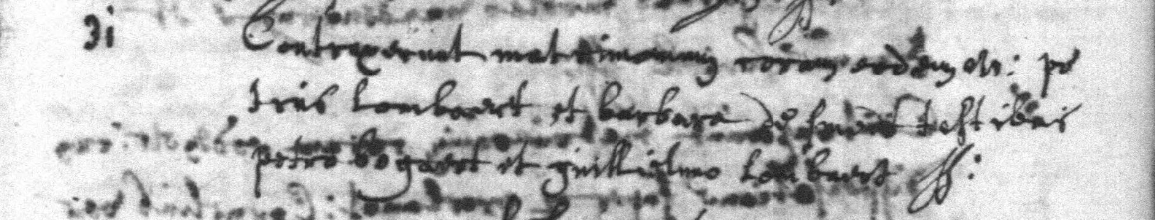 31 Contraxerunt matrimonium coram eodem dn: pe
trus lombaert et barbara de testibus
petro bogaert et guillielmo Lombaert